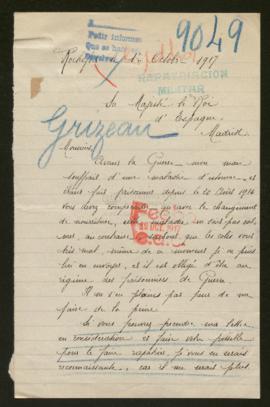 9049
Pedir informes
Rochefort 1er Octobre 1917
REPATRIACION
MILITAR
Sa Majesté le Roi
d'Espagne
Madrid
Grizeau
Monsieur
Avant la Guerre mon mari
souffrait d'une maladie d'estomac et
étant fait prisonnier depuis le 20 Août 1914
vous devez comprendre avec le changement
de nourriture, une maladie ne peut pas
au contraire surtout que les colis vont
très mal, même de ce moment je ne puis
lui en envoyer, et il est obligé d'être au
régime des prisonniers de Guerre.
Il ne s'en plaint pas pour ne me
faire de la peine.
Si vous pouvez prendre ma lettre
en considération et faire votre possible
pour le faire rapatrier, je vous en serais
reconnaissante, car il me serait plus